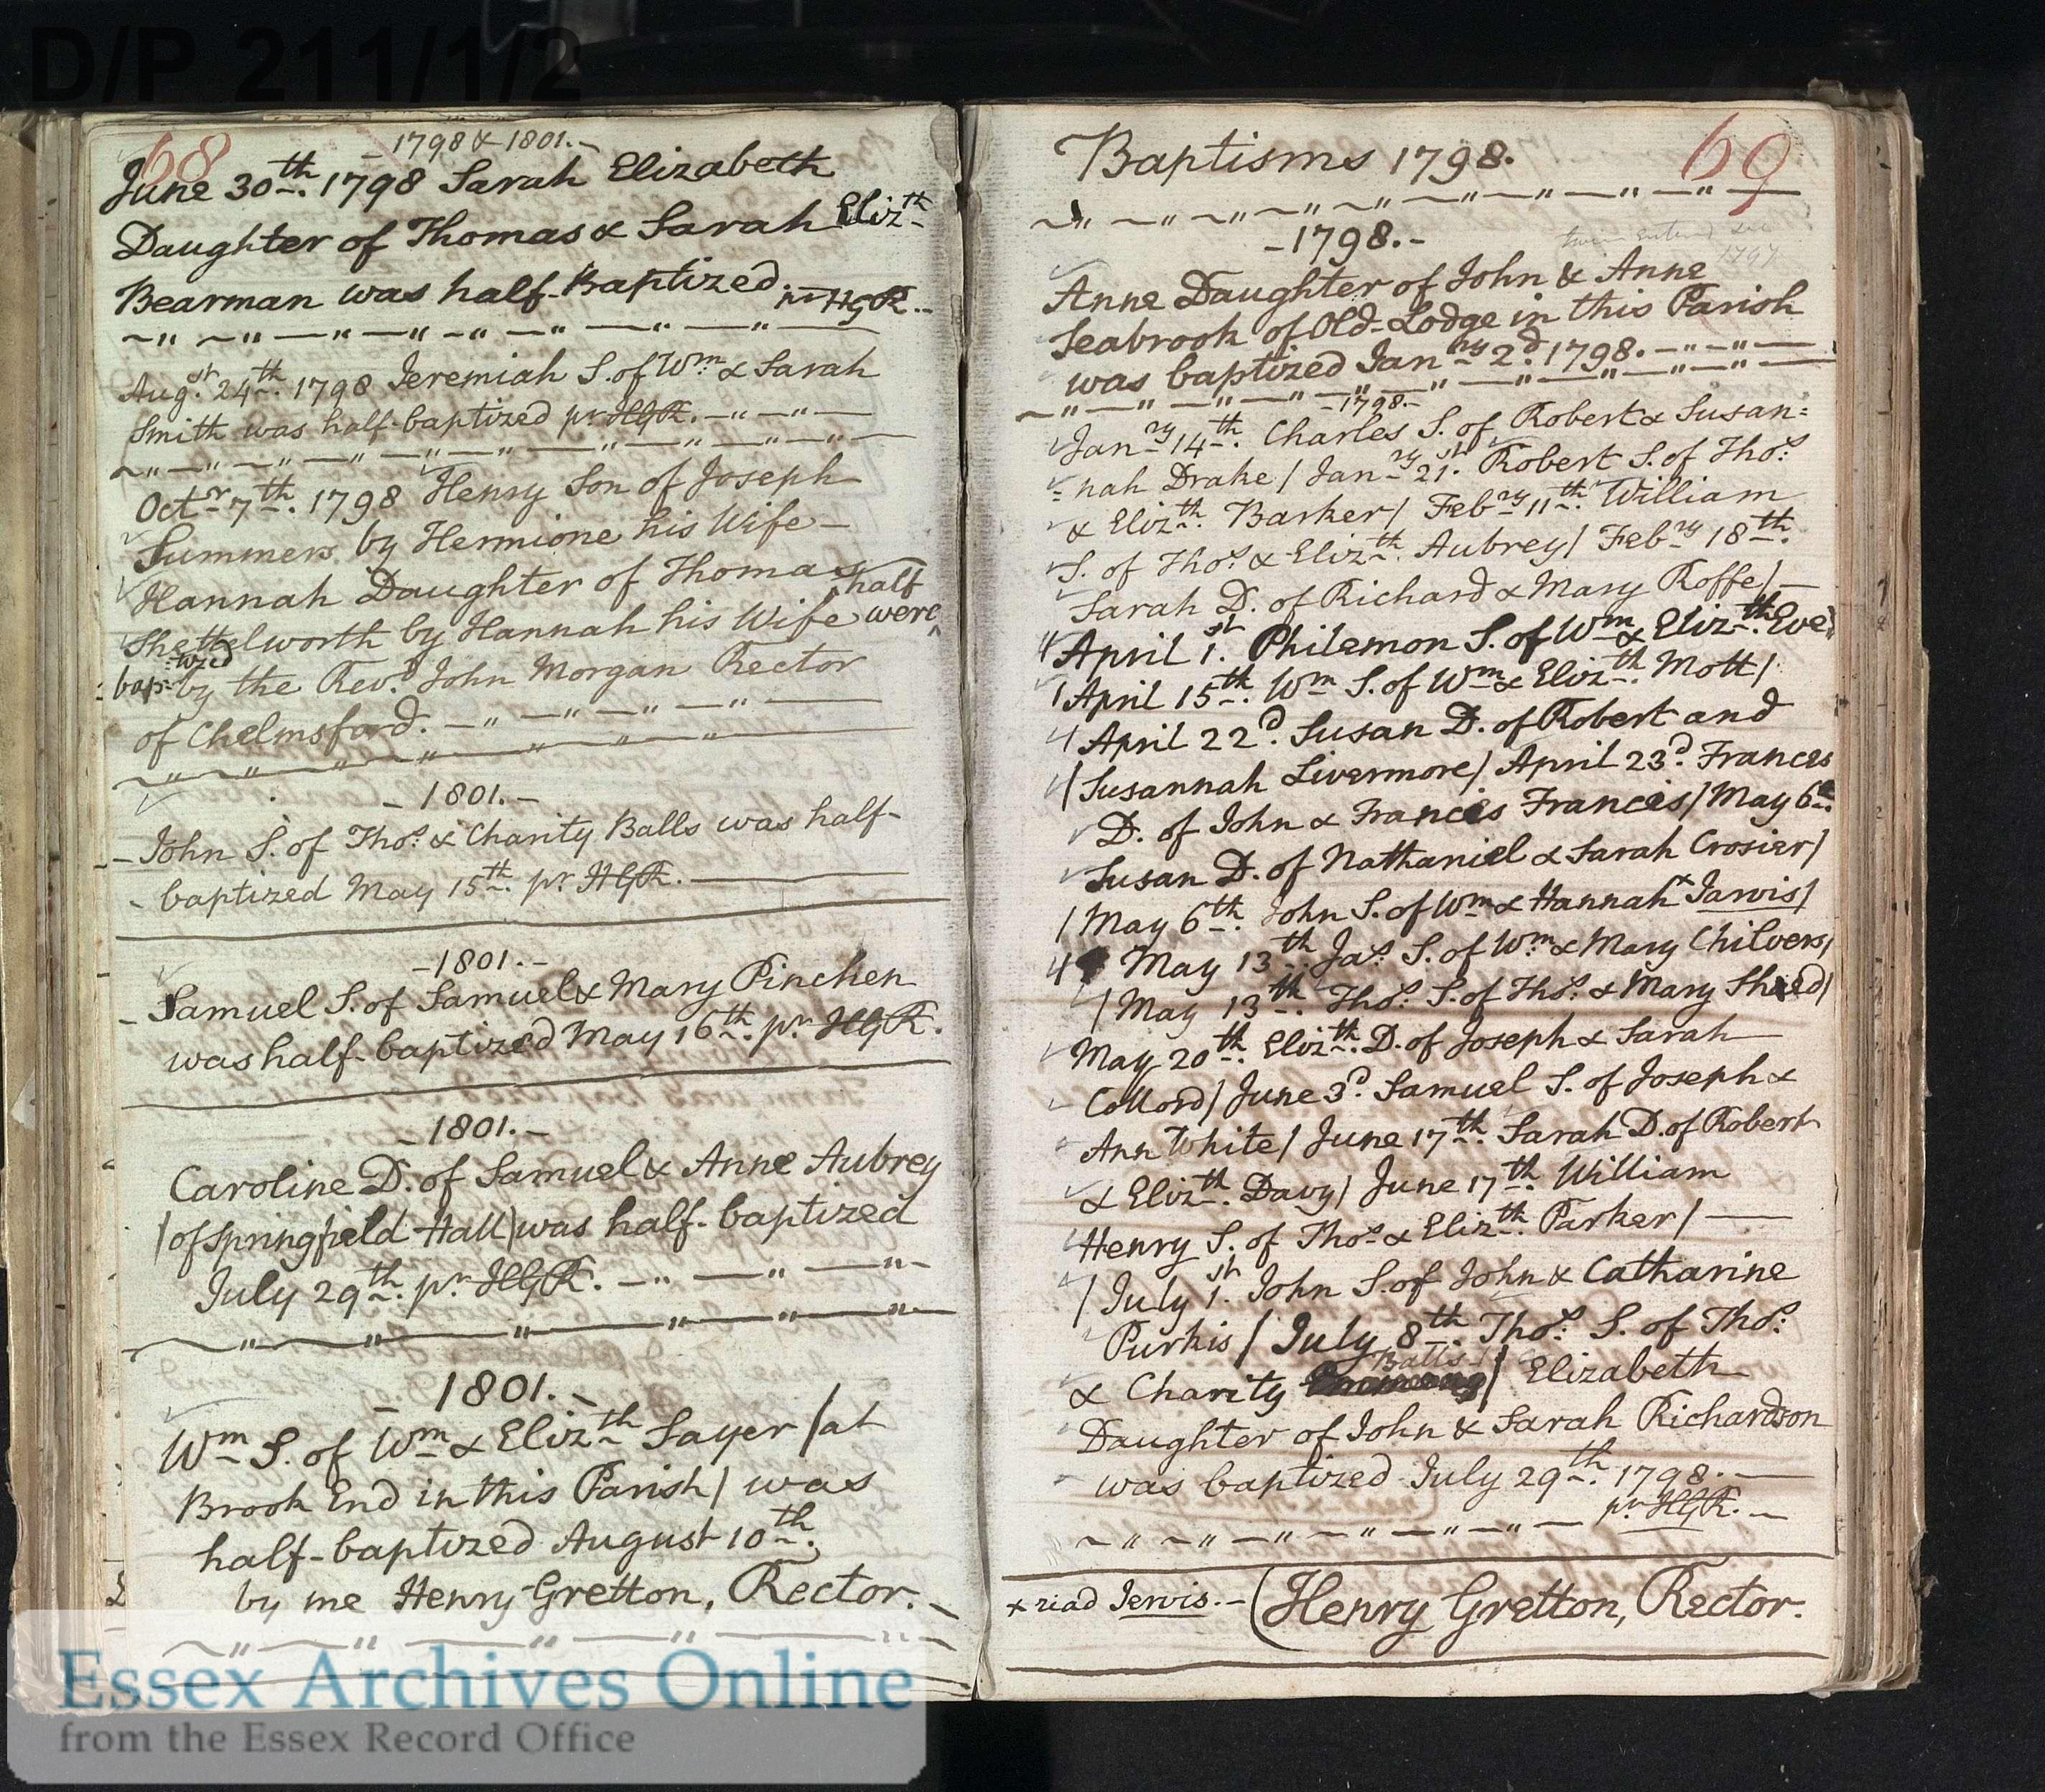 D/P 211/1/2
68
- 1798 & 1801. -
June 30th. 1798 Sarah Elizabeth
Daughter of Thomas & Sarah Elizth
Bearman was half-Baptized. pr HGR. -
Augst. 24th. 1798 Jeremiah S. of Wm. & Sarah
Smith was half-baptized pr HGR.
Octr 7th. 1798 Henry Son of Joseph
Summers by Hermione his Wife -
Hannah Daughter of Thomas
Shettelworth by Hannah his Wife were half
bap=tized by the Revd. John Morgan Rector
of Chelmsford.
- 1801. -
- John S. of Thos. & Charity Balls was half-
- baptized May 15th. pr HGR.
- 1801. -
- Samuel S. of Samuel & Mary Pinchen
was half-baptized May 16th. pr HGR.
- 1801. -
Caroline D. of Samuel & Anne Aubrey
/of Springfield Hall/ was half-baptized
July 29th. pr HGR.
- 1801. -
Wm S. of Wm & Elizth Sayer /at
Brook End in this Parish/ was
half-baptized August 10th.
by me Henry Gretton, Rector. -
Baptisms 1798.
69
- 1798. -
1797
Anne Daughter of John & Anne
Seabrook of Old-Lodge in this Parish
was baptized Janry 2d. 1798.
- 1798. -
Janry 14th. Charles S. of Robert & Susan=
=nah Drake/ Janry 21st. Robert S. of Thos.
& Elizth. Barker/ Febry 11th. William
S. of Thos. & Elizth. Aubrey/ Febry 18th.
Sarah D. of Richard & Mary Roffe/ -
April 1st. Philemon S. of Wm & Elizth. Eve/
/April 15th. Wm S. of Wm & Elizth. Mott/
/April 22d. Susan D. of Robert and
/Susannah Livermore/ April 23d. Frances
D. of John & Francis Francis/ May 6th.
Susan D. of Nathaniel & Sarah Crosier/
/May 6th. John S. of Wm & Hannah x Jarvis/
May 13th. Jas. S. of Wm. & Mary Chilvers/
/May 13th. Thos. S. of Thos. & Mary Sheed/
May 20th. Elizth. D. of Joseph & Sarah
Collord/ June 3d. Samuel S. of Joseph &
Ann White/ June 17th. Sarah D. of Robert
& Elizth. Davy/ June 17th. William
Henry S. of Thos. & Elizth. Parker/ -
/July 1st. John S. of John & Catharine
Purkis/ July 8th. Thos. S. of Thos.
& Charity Balls/ Elizabeth
Daughter of John & Sarah Richardson
was baptized July 29th. 1798. -
pr. HGR. -
x read Jervis. - (Henry Gretton, Rector.
Essex Archives Online
from the Essex Record Office